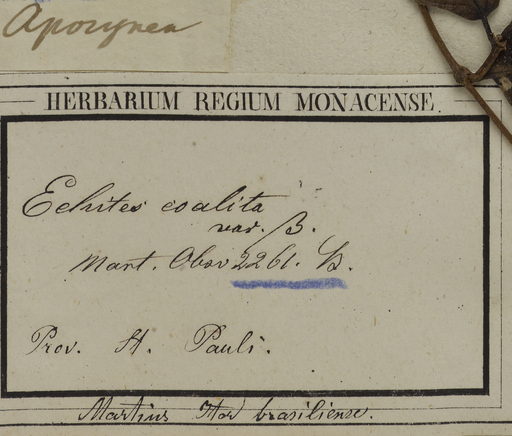 Apocynea
HERBARIUM REGIUM MONACENSE.
Echites coalita
var. β.
Mart. Obs. 2261. b.
Prov. St. Pauli.
Martius Iter brasiliense.